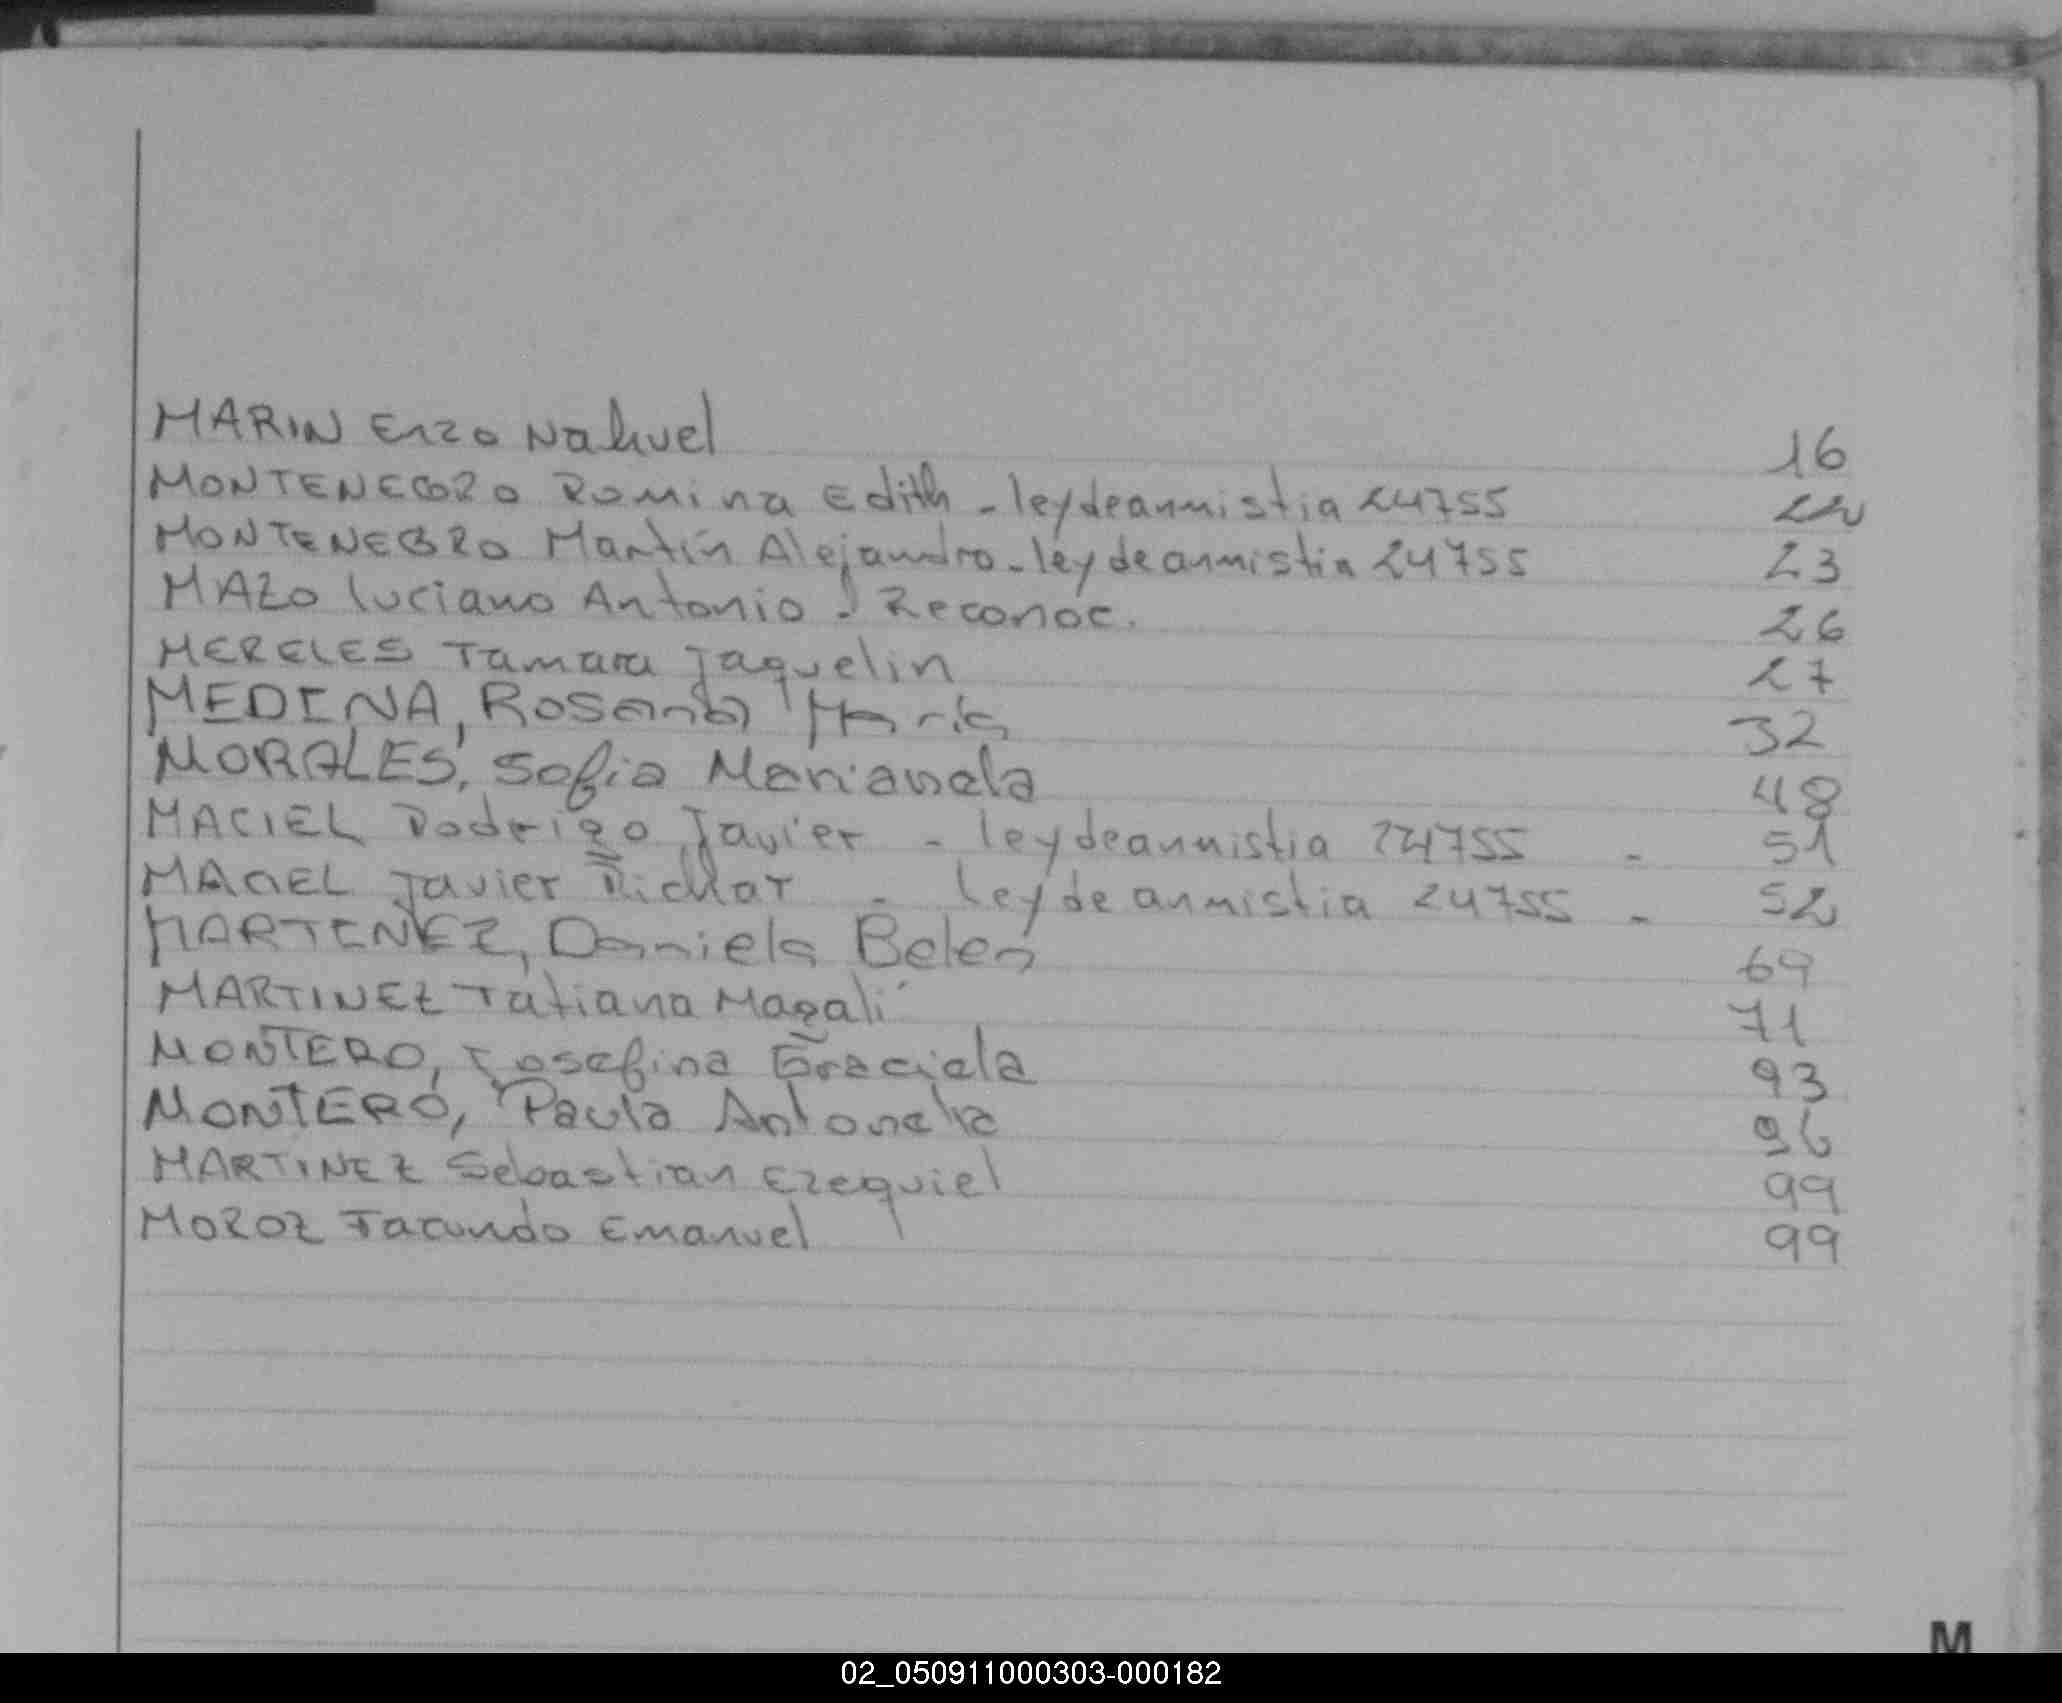 MARIN Enzo Nahuel 16
MONTENEGRO Romina Edith - ley de amnistia 24755 22
MONTENEGRO Martín Alejandro - ley de amnistia 24755 23
MAZO Luciano Antonio - Reconoc. 26
MERELES Tamara Jaquelin 27
MEDINA, Rosana Maria 32
MORALES, Sofia Marianela 48
MACIEL Rodrigo Javier - ley de amnistia 24755 - 51
MACIEL Javier Richar - ley de amnistia 24755 - 52
MARTINEZ, Daniela Belen 69
MARTINEZ Tatiana Magalí 71
MONTERO, Josefina Graciela 93
MONTERO, Paula Antonela 96
MARTINEZ Sebastian Ezequiel 99
MOROZ Facundo Emanuel 99
M
02_050911000303-000182